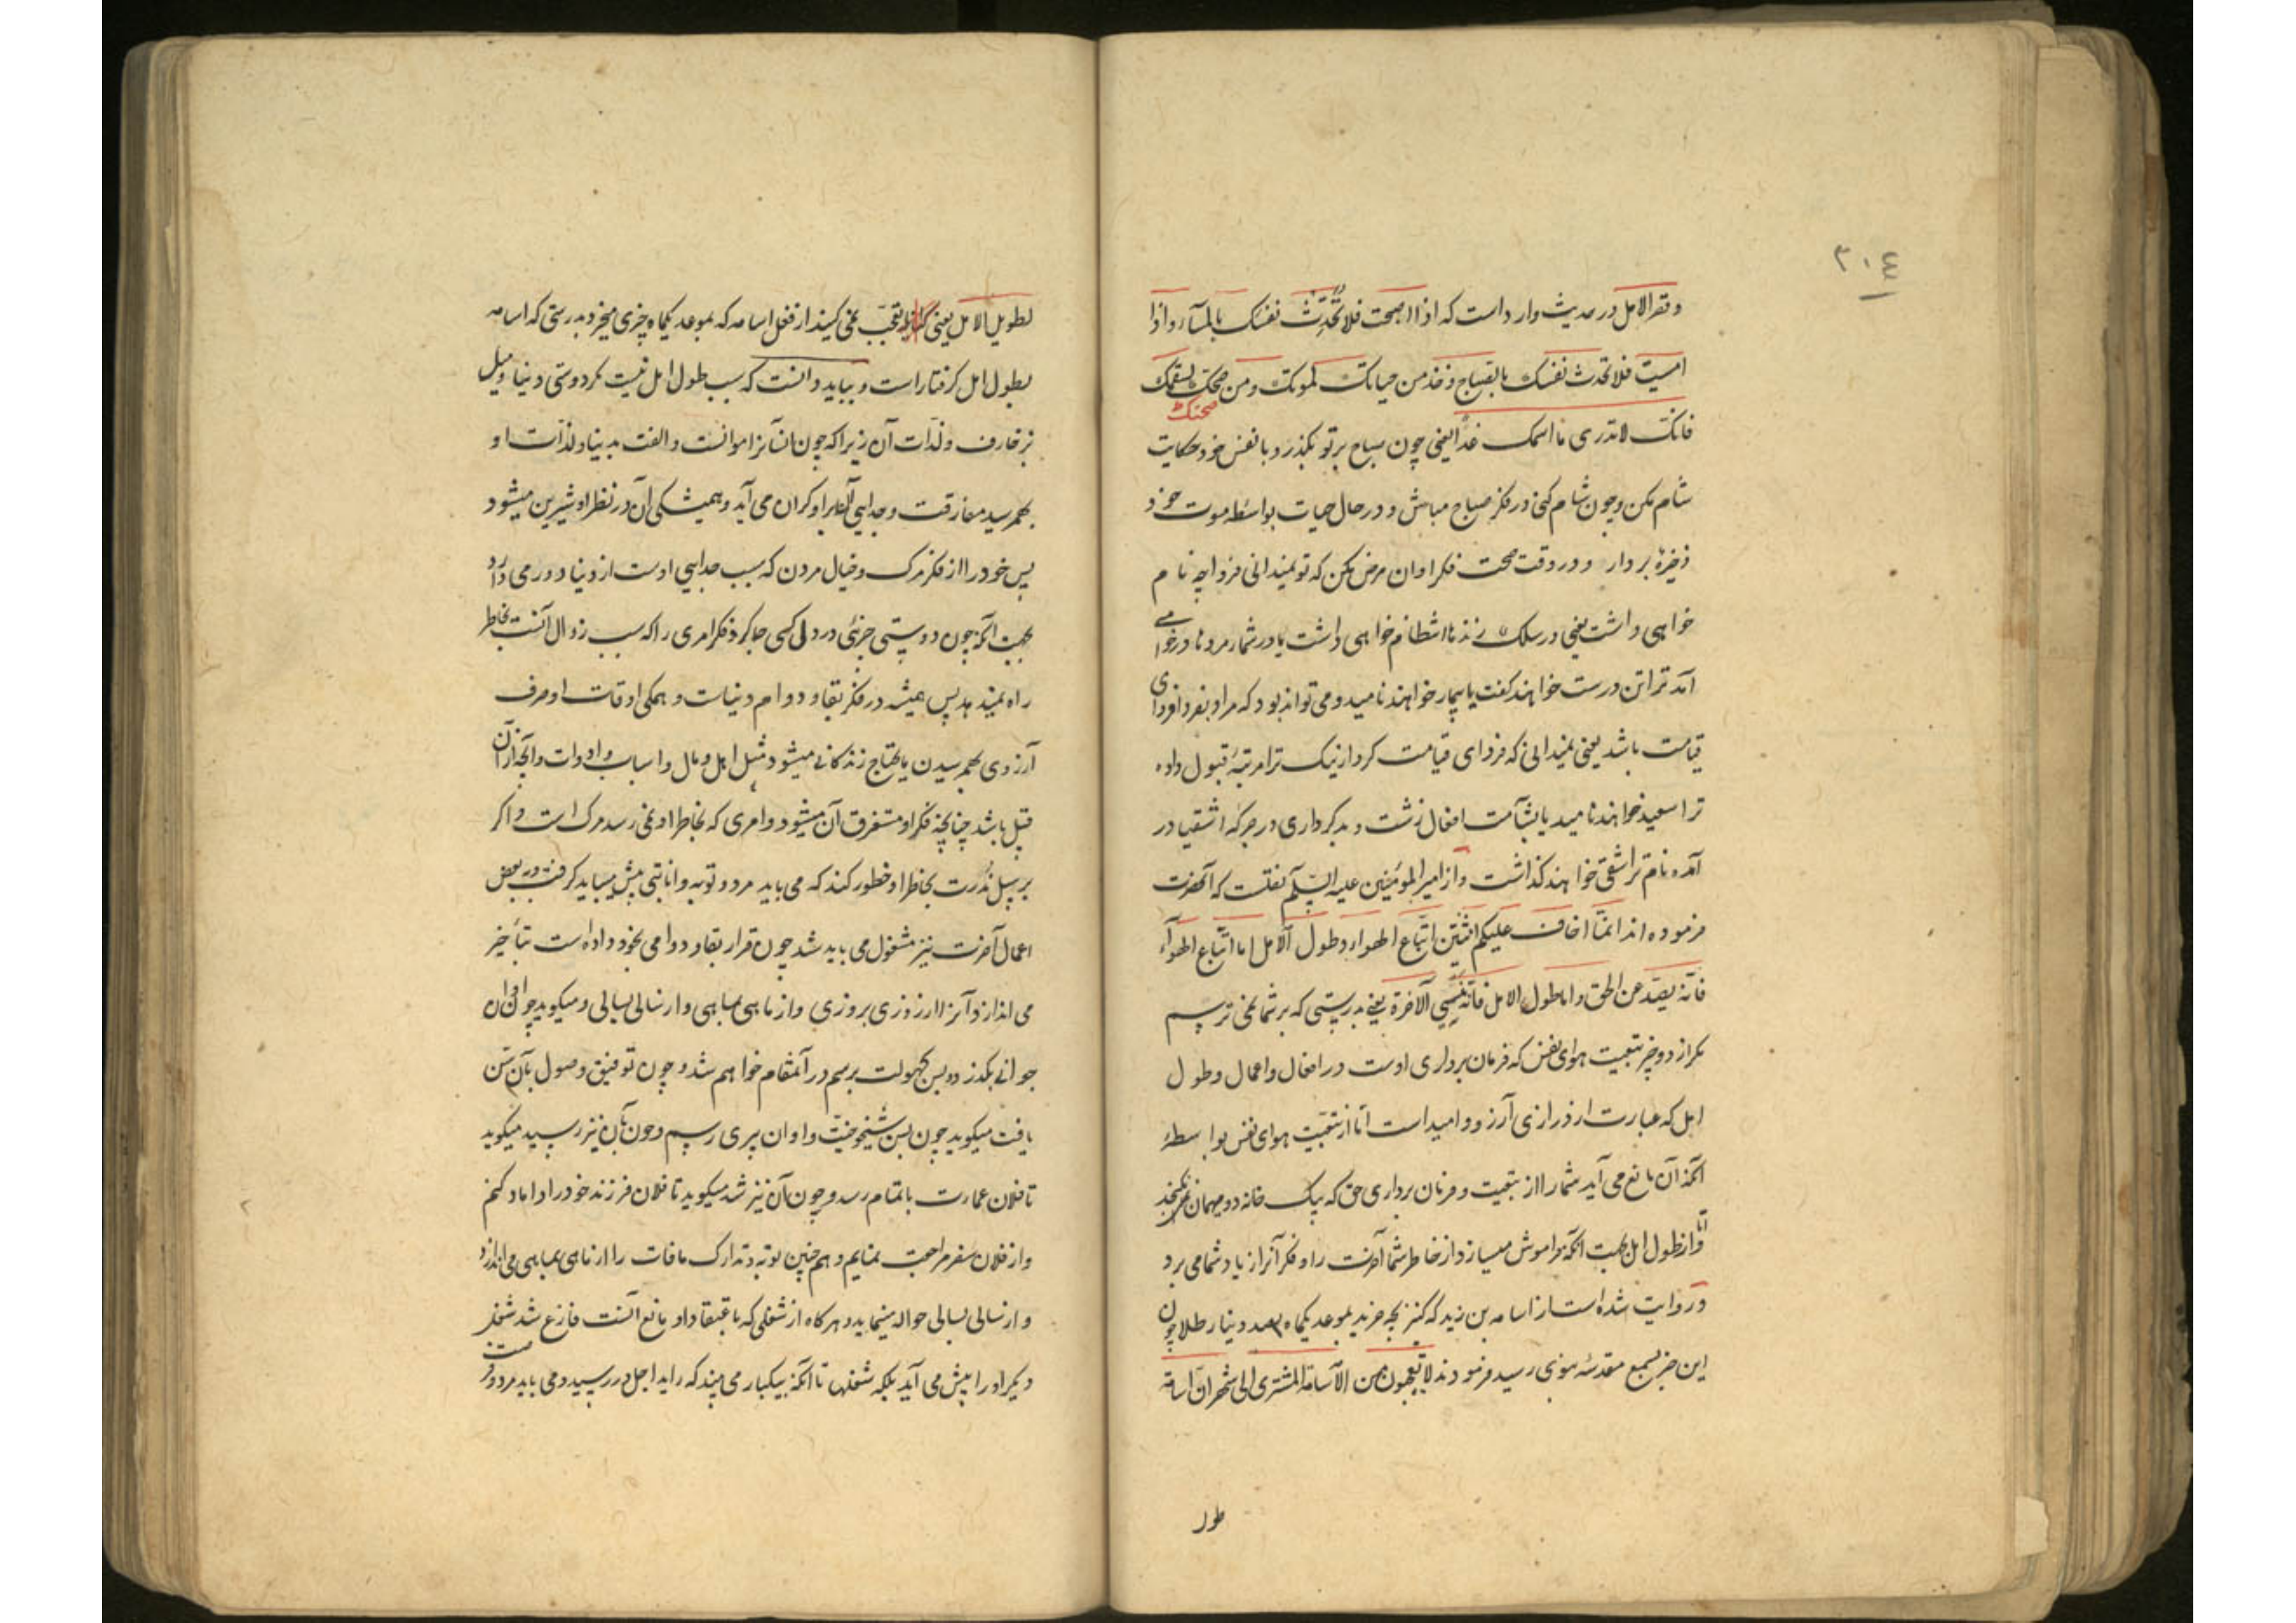 ٣٠٤
وقصر الامل در حدیث وارد است که اذا اصبحت فلا تُحَدِّث نفسک بالمسآء واذا
امسیت فلا تحدث نفسک بالصباح وخذ من حیاتک لموتک ومن صحتک لسقمک
صحتک
فانک لا تدری ما اسمک غداً یعنی چون صباح بر تو بگذرد با نفس خود حکایت
شام مکن وچون شام کنی در فکر صباح مباش و در حال حیات بواسطه موت خود
ذخیرهٔ بردار و در وقت صحت فکر اوان مرض بکن که تو نمیدانی فردا چه نام
خواهی داشت یعنی در سلک زندها انتظام خواهی داشت یا در شمار مردها در خواهی
آمد ترا تن درست خواهند گفت یا بیمار خواهند نامید و می تواند بود که مراد بفردا فردای
قیامت باشد یعنی نمیدانی که فردای قیامت کردار نیک ترا مرتبهٔ قبول داده
ترا سعید خواهند نامید یا بشآمت افعال زشت و بد کرداری در جرکه اشقیا در
آمده نام ترا شقی خواهند گذاشت واز امیر المؤمنین علیه السّلم نقلست که آنحضرت
فرموده اند انمّا اخاف علیکم اثنتین اتّباع الهواء وطول الآمل اما اتّباع الهوآء
فانّه یصدّ عن الحق واما طول الامل فانّه یُنسِی الآخرة یعنی بدرستی که بر شما نمی ترسم
مکر از دو چیز تبعیت هوای نفس که فرمان برداری اوست در افعال واعمال وطول
امل که عبارت از درازی آرزو وامید است امّا از تبعیّت هوای نفس بواسطهٔ
آنکه آن مانع می آید شما را از تبعیت و فرمان برداری حق که بیک خانه دو میهمان نمیکنجد
وامّا از طول امل بجهت آنکه فراموش میسازد از خاطر شما آخرت را وفکر آنرا از یاد شما می برد
ور وایت شده است از اسامه بن زید که کنیز بچه خرید بموعد یکماه بصد دینار طلا چون
این خبر بسمع مقدسه نبوی رسید فرمودند لا تعجبون من الآسامة المشتری الی شهر انّ اسامة
طول
لطویل الامل یعنی ایا تعجّب نمی کنید از فعل اسامه که بموعد یکماه چیزی میخرد بدرستی که اسامه
بطول امل گرفتار است و بباید دانست که سبب طول امل نیست مکر دوستی دنیا ومیل
بزخارف ولذّات آن زیرا که چون انسانرا موانست والفت بدنیا ولذّات او
بهمرسید مفارقت وجدایی آنها بر او کران می آید و همیشکی آن در نظر او شیرین میشود
پس خود را از فکر مرک وخیال مردن که سبب جدایی اوست از دنیا دور می دارد
بجهت آنکه چون دوستی چیزی در دل کسی جا کرد فکر امری را که سبب زوال آنست بخاطر
راه نمیدهد پس همیشه در فکر بقا و دوام دنیاست و همکی اوقات او صرف
آرزوی بهم رسیدن مایحتاج زندکانی میشود مثل اهل و مال واسباب وادوات وآنچه از آن
قبیل باشد چنانچه فکر او مستغرق آن میشود وامری که بخاطر او نمی رسد مرک است واکر
بر سبیل نُدرت بخاطر او خطور کند که می باید مرد و توبه وانابتی پیش میباید کرفت وببعض
اعمال آخرت نیز مشغول می باید شد چون قرار بقا و دوامی بخود داده است بتأخیر
می اندازد آنرا از روزی بروزی واز ماهی بماهی واز سالی بسالی و میکوید چون اوان
جوانی بکذرد و بسن کهولت برسم در آنمقام خواهم شد و چون توفیق وصول بآن سن
یافت میکوید چون بسن شیخوخیّت واوان پیری رسم وچون بآن نیز رسید میکوید
تا فلان عمارت باتمام رسد و چون آن نیز شد میکوید تا فلان فرزند خود را داماد کنم
واز فلان سفر مراجعت نمایم و همچنین توبه و تدارک مافات را از ماهی بماهی می اندازد
واز سالی بسالی حواله مینماید و هر گاه از شغلی که باعتقاد او مانع آنست فارغ شد شغل
دیگر او را پیش می آید بلکه شغلها تا آنکه بیکبار می بیند که راید اجل در رسید و می باید مرد وفرصت